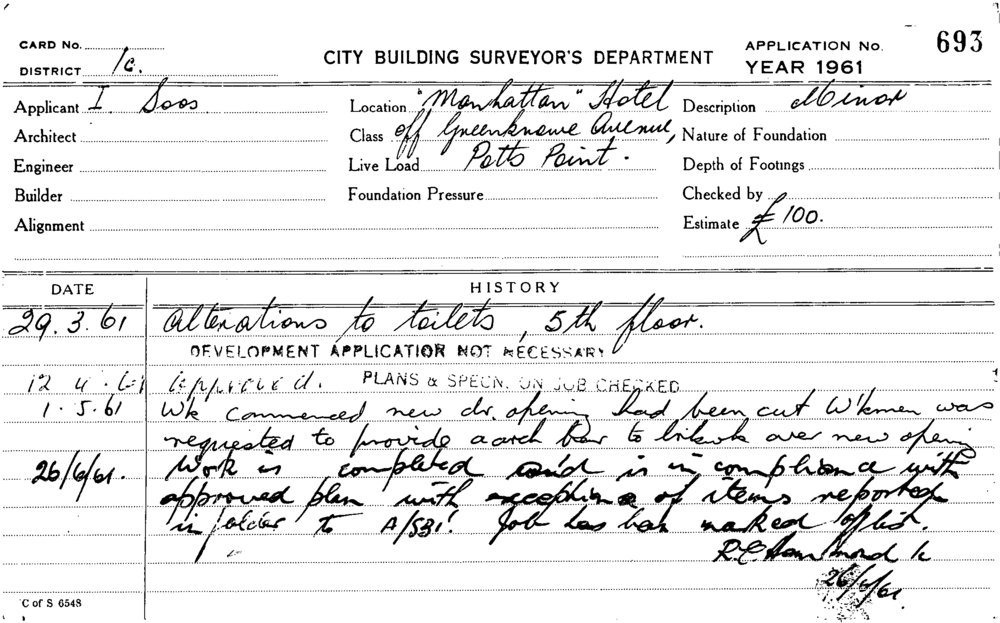 CARD No.
DISTRICT 1c.
CITY BUILDING SURVEYOR'S DEPARTMENT
APPLICATION No. 693
YEAR 1961
Applicant I Soos
Location "Manhattan" Hotel
Description Minor
Architect
Class off Greenknowe Avenue,
Nature of Foundation
Engineer
Live Load Potts Point.
Depth of Footings
Builder
Foundation Pressure
Checked by
Alignment
Estimate £100.
DATE HISTORY
29.3.61 Alterations to toilets, 5th floor.
DEVELOPMENT APPLICATION NOT NECESSARY
12 4.61 Approved. PLANS & SPECN. ON JOB CHECKED
1.5.61 Wk commenced new dr. opening had been cut W'kmen was
requested to provide aarch bar to brkwk over new opening
26/6/61. Work is completed and is in compliance with
approved plan with exception of items reported
in folder to A/531. Job has been marked off list.
R.C. Hammond 1c
26/6/61.
C of S 6548